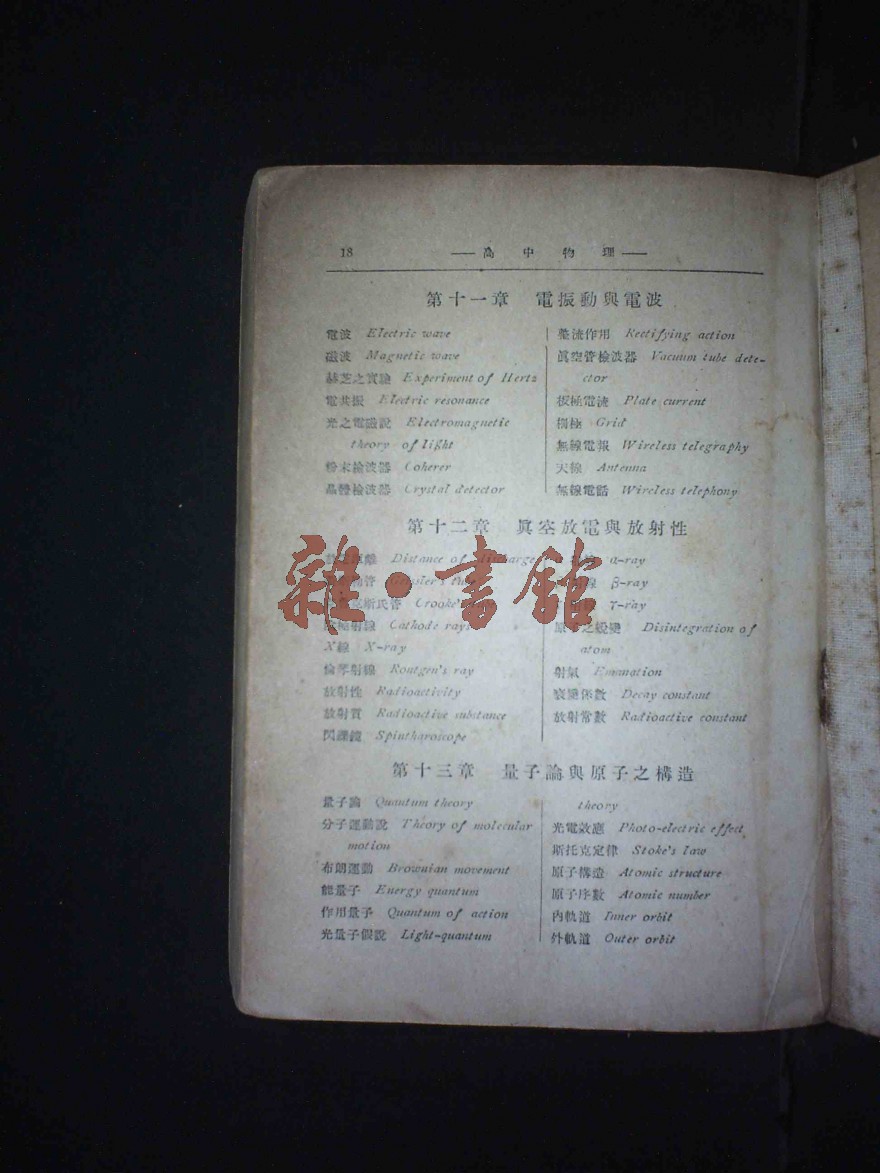 18 —高中物理—
第十一章 電振動與電波
電波 Electric wave
磁波 Magnetic wave
赫芝之實驗 Experiment of Hertz
電共振 Electric resonance
光之電磁說 Electromagnetic
theory of light
粉末檢波器 Coherer
晶體檢波器 Crystal detector
整流作用 Rectifying action
眞空管檢波器 Vacuum tube dete-
ctor
板極電流 Plate current
柵極 Grid
無線電報 Wireless telegraphy
天線 Antenna
無線電話 Wireless telephony
第十二章 眞空放電與放射性
Distance of discharge
管 Geissler's tube
斯氏管 Crooke's
極射線 Cathode rays
X線 X-ray
倫琴射線 Rontgen's ray
放射性 Radioactivity
放射質 Radioactive substance
閃鑠鏡 Spinthariscope
α-ray
線 β-ray
γ-ray
原子之蛻變 Disintegration of
atom
射氣 Emanation
衰變係數 Decay constant
放射常數 Radioactive constant
雜·書館
第十三章 量子論與原子之構造
量子論 Quantum theory
分子運動說 Theory of molecular
motion
布朗運動 Brownian movement
能量子 Energy quantum
作用量子 Quantum of action
光量子假說 Light-quantum
theory
光電效應 Photo-electric effect
斯托克定律 Stoke's law
原子構造 Atomic structure
原子序數 Atomic number
內軌道 Inner orbit
外軌道 Outer orbit